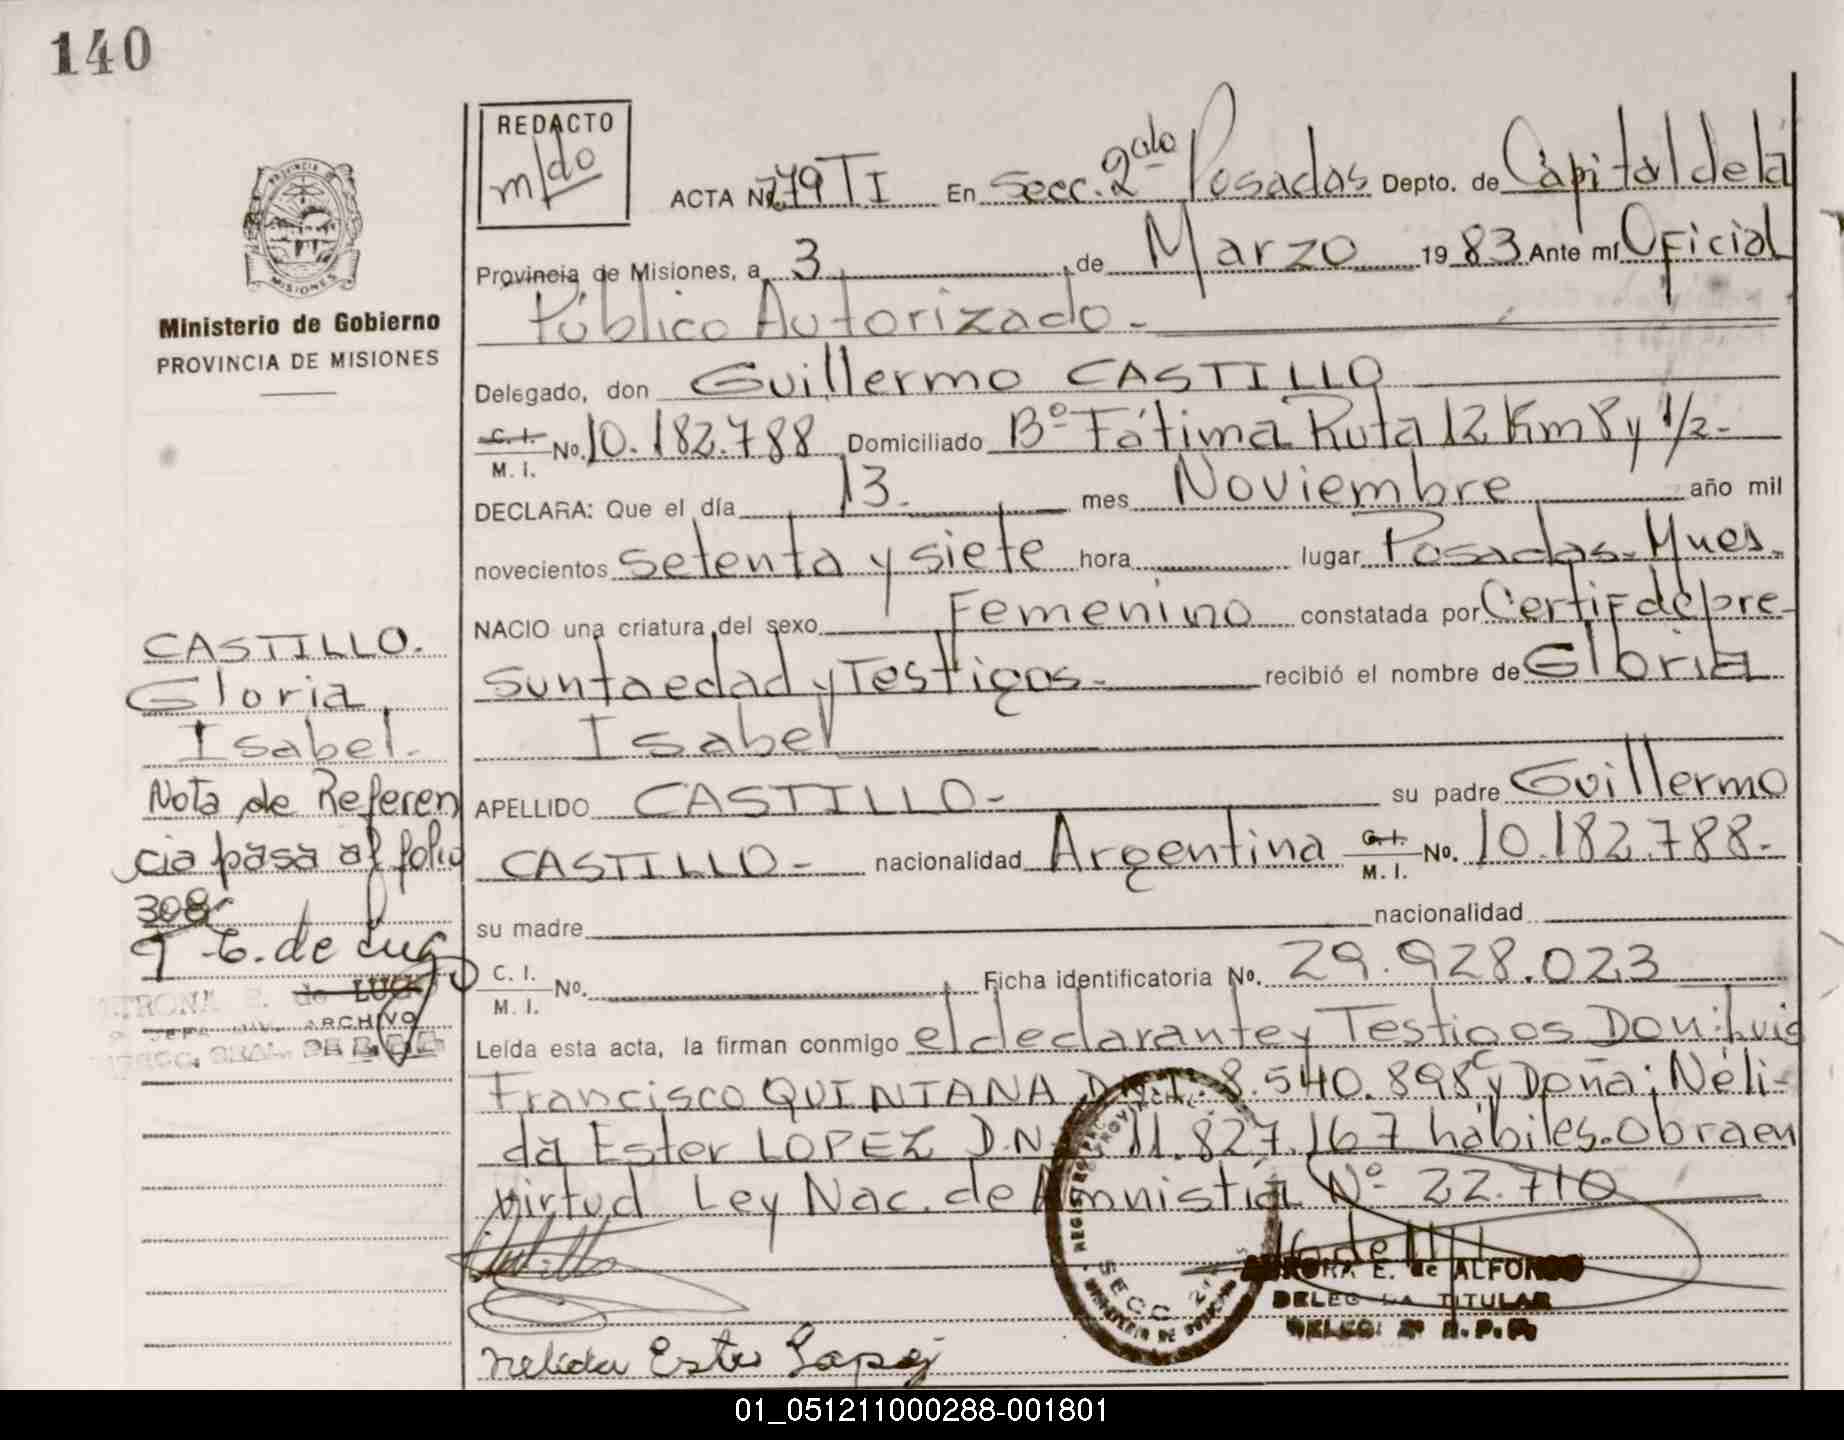 140
REDACTO
m/do
ACTA No 279 TI En Secc. 2da Posadas Depto. de Capital de la
Provincia de Misiones, a 3 de Marzo 1983 Ante mí Oficial
Público Autorizado.-
PROVINCIA DE
MISIONES
Ministerio de Gobierno
PROVINCIA DE MISIONES
Delegado, don Guillermo CASTILLO
C. I.
M. I. No. 10.182.788 Domiciliado Bº Fátima Ruta 12 Km 8 y 1/2-
DECLARA: Que el día 13. mes Noviembre año mil
novecientos setenta y siete hora lugar Posadas-Mnes.
NACIO una criatura del sexo Femenino constatada por Certif de pre-
sunta edad y Testigos.- recibió el nombre de Gloria
Isabel
APELLIDO CASTILLO- su padre Guillermo
CASTILLO- nacionalidad Argentina C. I.
M. I. No. 10.182.788.-
su madre nacionalidad
C. I.
M. I. No. Ficha identificatoria No. 29.928.023
Leída esta acta, la firman conmigo el declarante y Testigos Don: Luis
Francisco QUINTANA D.N.I. 8.540.898 y Doña: Néli-
da Ester LOPEZ D.N. 11.827.167 hábiles.-Obra en
virtud Ley Nac. de Amnistía Nº 22.710
CASTILLO.
Gloria
Isabel.-
Nota de Referen
cia pasa al folio
308
de LUGO
JEFA DIV. ARCHIVO
REGISTRO
SECC. 2ª
E. de ALFONSO
DELEGADA TITULAR
DELEG. 2ª R.P.P.
Nelida Ester Lopez
01_051211000288-001801